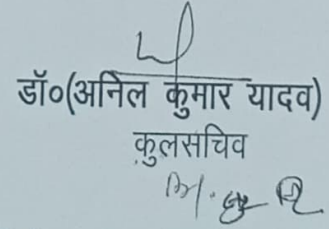 डॉ०(अनिल कुमार यादव)
कुलसचिव